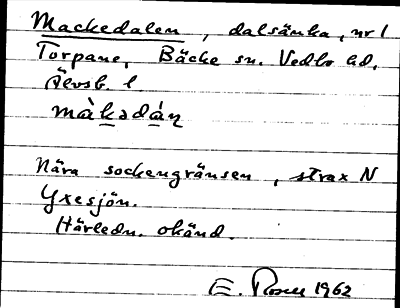 Mackedalen, dalsänka, nr 1
Torpane, Bäcke sn. Vedbo hd.
Älvsb. l
màkədán
Nära sockengränsen, strax N
Yxesjön.
Härledn. okänd.
E. 1962